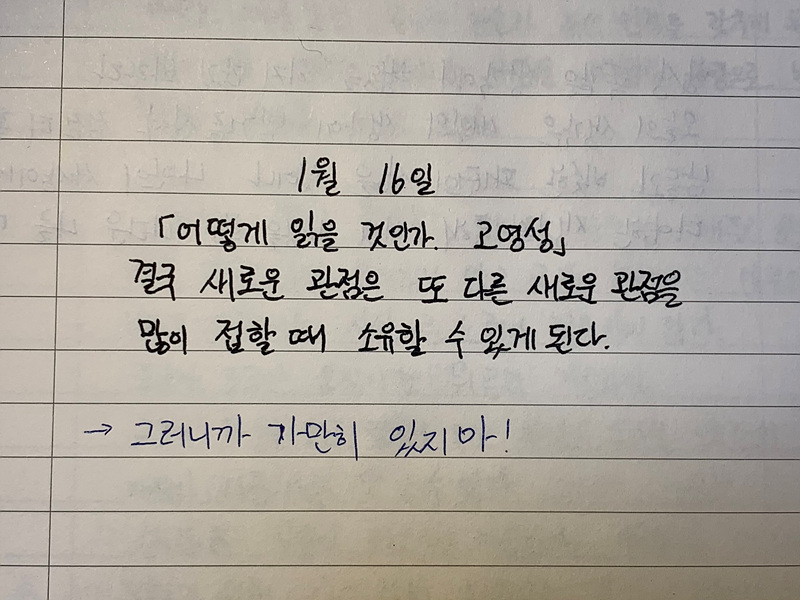 1월 16일
「어떻게 읽을 것인가. 고영성」
결국 새로운 관점은 또 다른 새로운 관점을
많이 접할 때 소유할 수 있게 된다.
→ 그러니까 가만히 있지마!